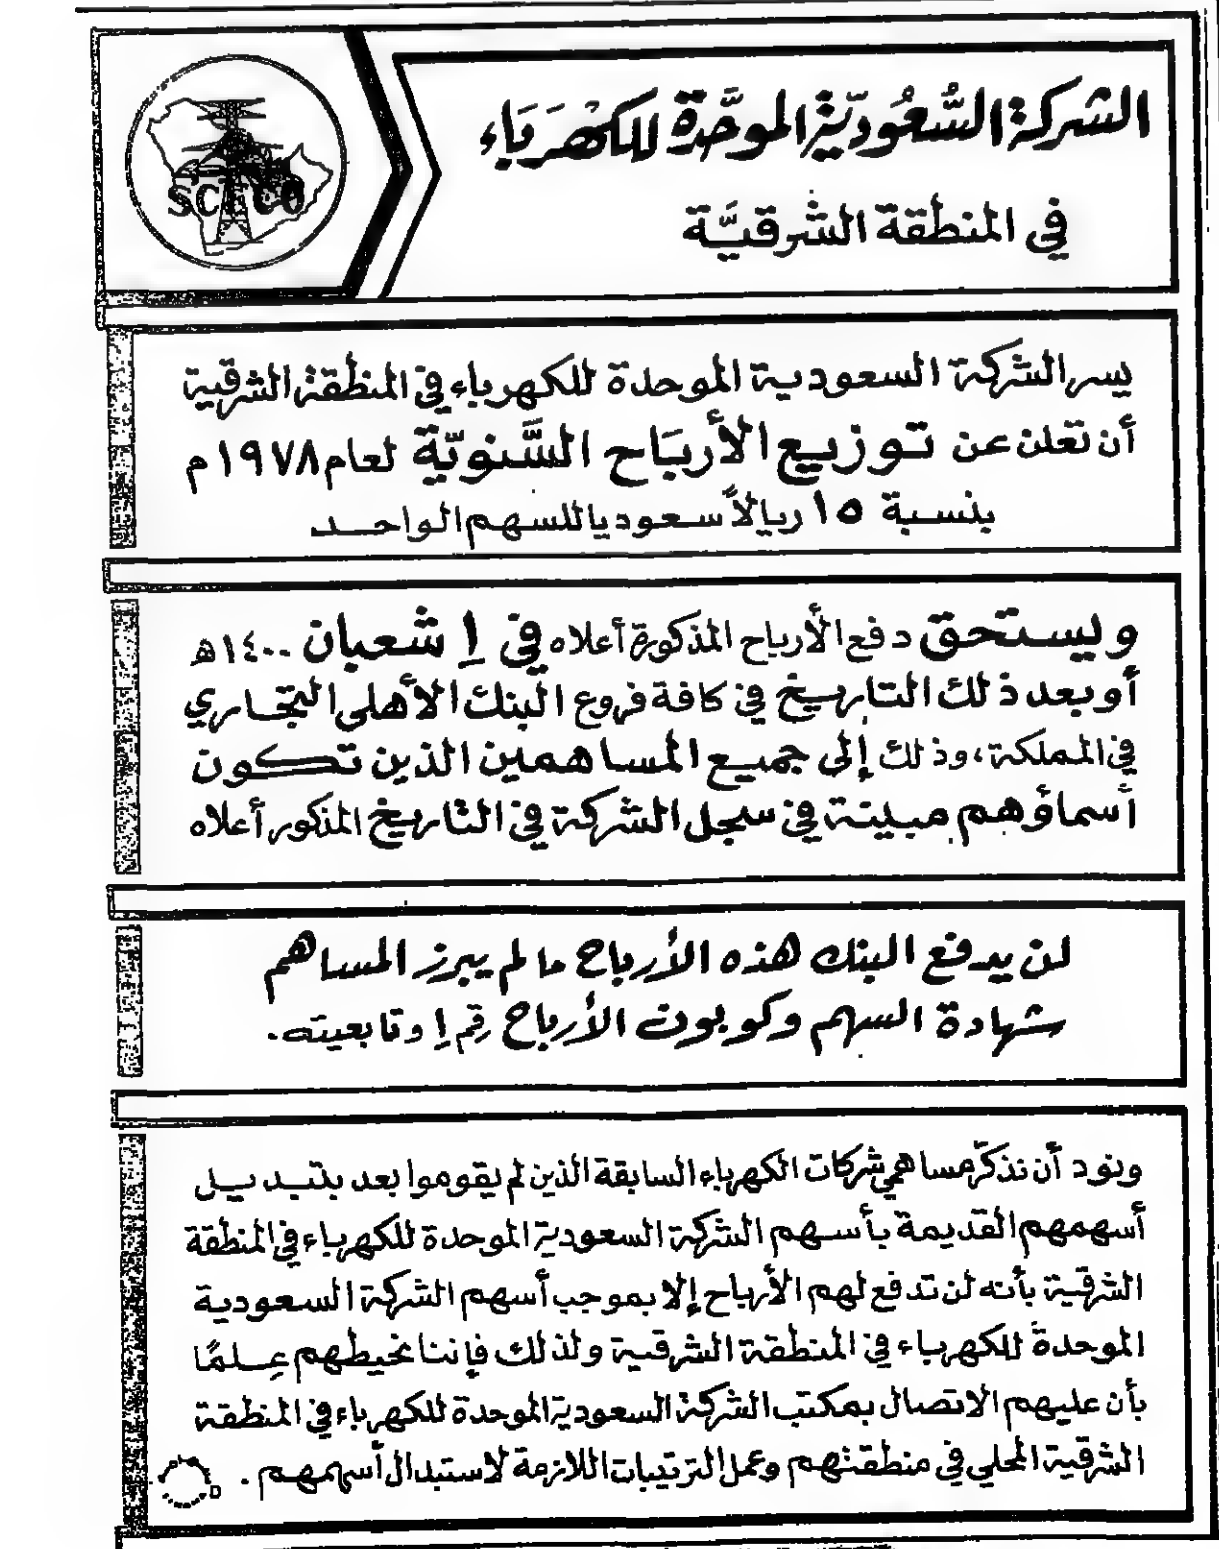 الشركة السُّعُوديّة الموحَّدة للكهرَبَاء
في المنطقة الشرقيَّة
SCECO
يسر الشركة السعودية الموحدة للكهرباء في المنطقة الشرقية
أن تعلن عن توزيع الأربَاح السَّنويّة لعام ١٩٧٨م
بنسبة ١٥ ريالاً سعوديا للسهم الواحد
ويستحق دفع الأرباح المذكورة أعلاه في ١ شعبان ١٤٠٠ﻫ
أو بعد ذلك التاريخ في كافة فروع البنك الأهلي التجاري
في المملكة، وذلك إلى جميع المساهمين الذين تكون
أسماؤهم مبينة في سجل الشركة في التاريخ المذكور أعلاه
لن يدفع البنك هذه الأرباح ما لم يبرز المساهم
شهادة السهم وكوبون الأرباح رقم ١ وتابعيته.
ونود أن نذكّر مساهمي شركات الكهرباء السابقة الذين لم يقوموا بعد بتبديل
أسهمهم القديمة بأسهم الشركة السعودية الموحدة للكهرباء في المنطقة
الشرقية بأنه لن تدفع لهم الأرباح إلا بموجب أسهم الشركة السعودية
الموحدة للكهرباء في المنطقة الشرقية ولذلك فإننا نحيطهم عِلمًا
بأن عليهم الاتصال بمكتب الشركة السعودية الموحدة للكهرباء في المنطقة
الشرقية المحلي في منطقتهم وعمل الترتيبات اللازمة لاستبدال أسهمهم.